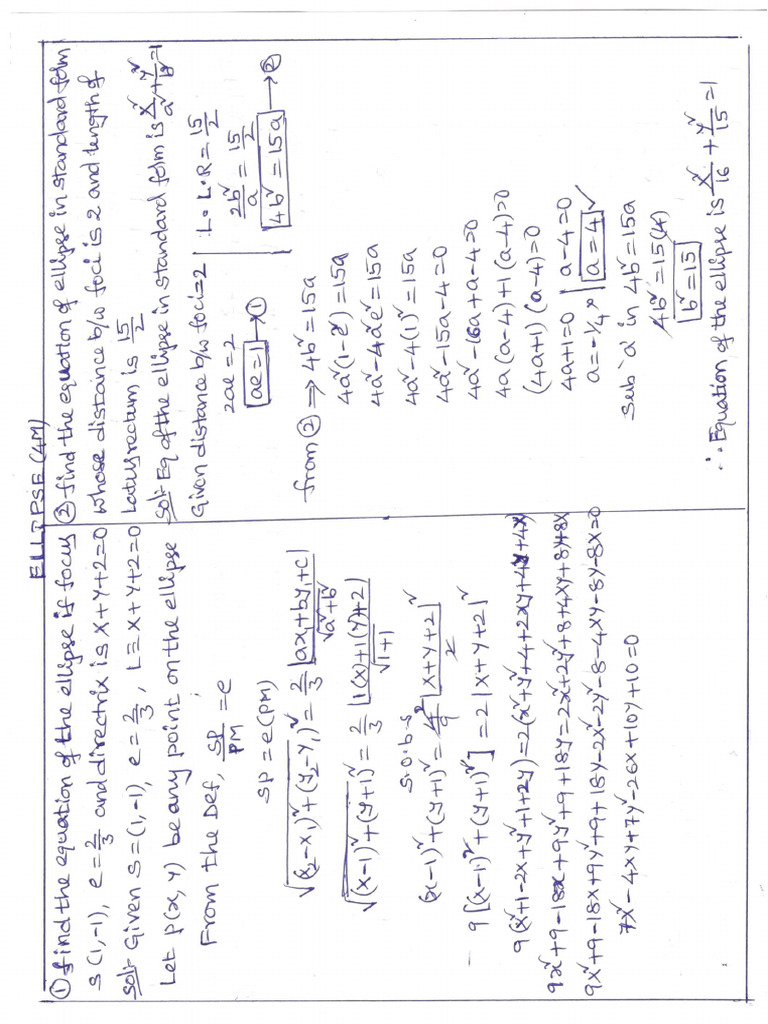 ELLIPSE (4M)
① Find the equation of the ellipse if focus
S(1,-1), e=2/3 and directrix is x+y+2=0
Sol:- Given S=(1,-1), e=2/3, L≡x+y+2=0
Let P(x, y) be any point on the ellipse
From the Def, SP/PM = e
SP = e(PM)
√(x₂-x₁)²+(y₂-y₁)² = 2/3 |ax₁+by₁+c|/√a²+b²
√(x-1)²+(y+1)² = 2/3 |1(x)+1(y)+2|/√1+1
S.O.b.S
(x-1)²+(y+1)² = 4/9 |x+y+2|²/2
9[(x-1)²+(y+1)²] = 2|x+y+2|²
9(x²+1-2x+y²+1+2y)=2(x²+y²+4+2xy+4y+4x)
9x²+9-18x+9y²+9+18y=2x²+2y²+8+4xy+8y+8x
9x²+9-18x+9y²+9+18y-2x²-2y²-8-4xy-8y-8x=0
7x²-4xy+7y²-26x+10y+10=0
② Find the equation of ellipse in standard form
whose distance b/w foci is 2 and length of
Latus rectum is 15/2
Sol:- Eq of the ellipse in standard form is x²/a²+y²/b²=1
Given distance b/w foci=2
2ae=2
ae=1 → ①
L.L.R=15/2
2b²/a = 15/2
4b²=15a → ②
from ② ⇒ 4b²=15a
4a²(1-e²)=15a
4a²-4a²e²=15a
4a²-4(1)²=15a
4a²-15a-4=0
4a²-16a+a-4=0
4a(a-4)+1(a-4)=0
(4a+1)(a-4)=0
4a+1=0 | a-4=0
a=-1/4 × | a=4 ✓
Sub 'a' in 4b²=15a
4b²=15(4)
b²=15
∴ Equation of the ellipse is x²/16+y²/15=1